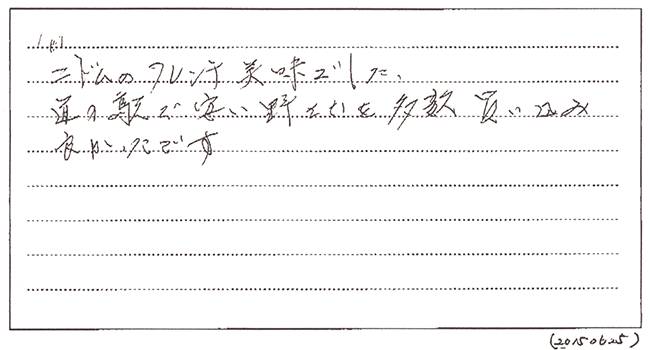 ニドムのフレンチ美味でした、
道の駅で安い野菜を多数買い込み
良かったです
(20150625)